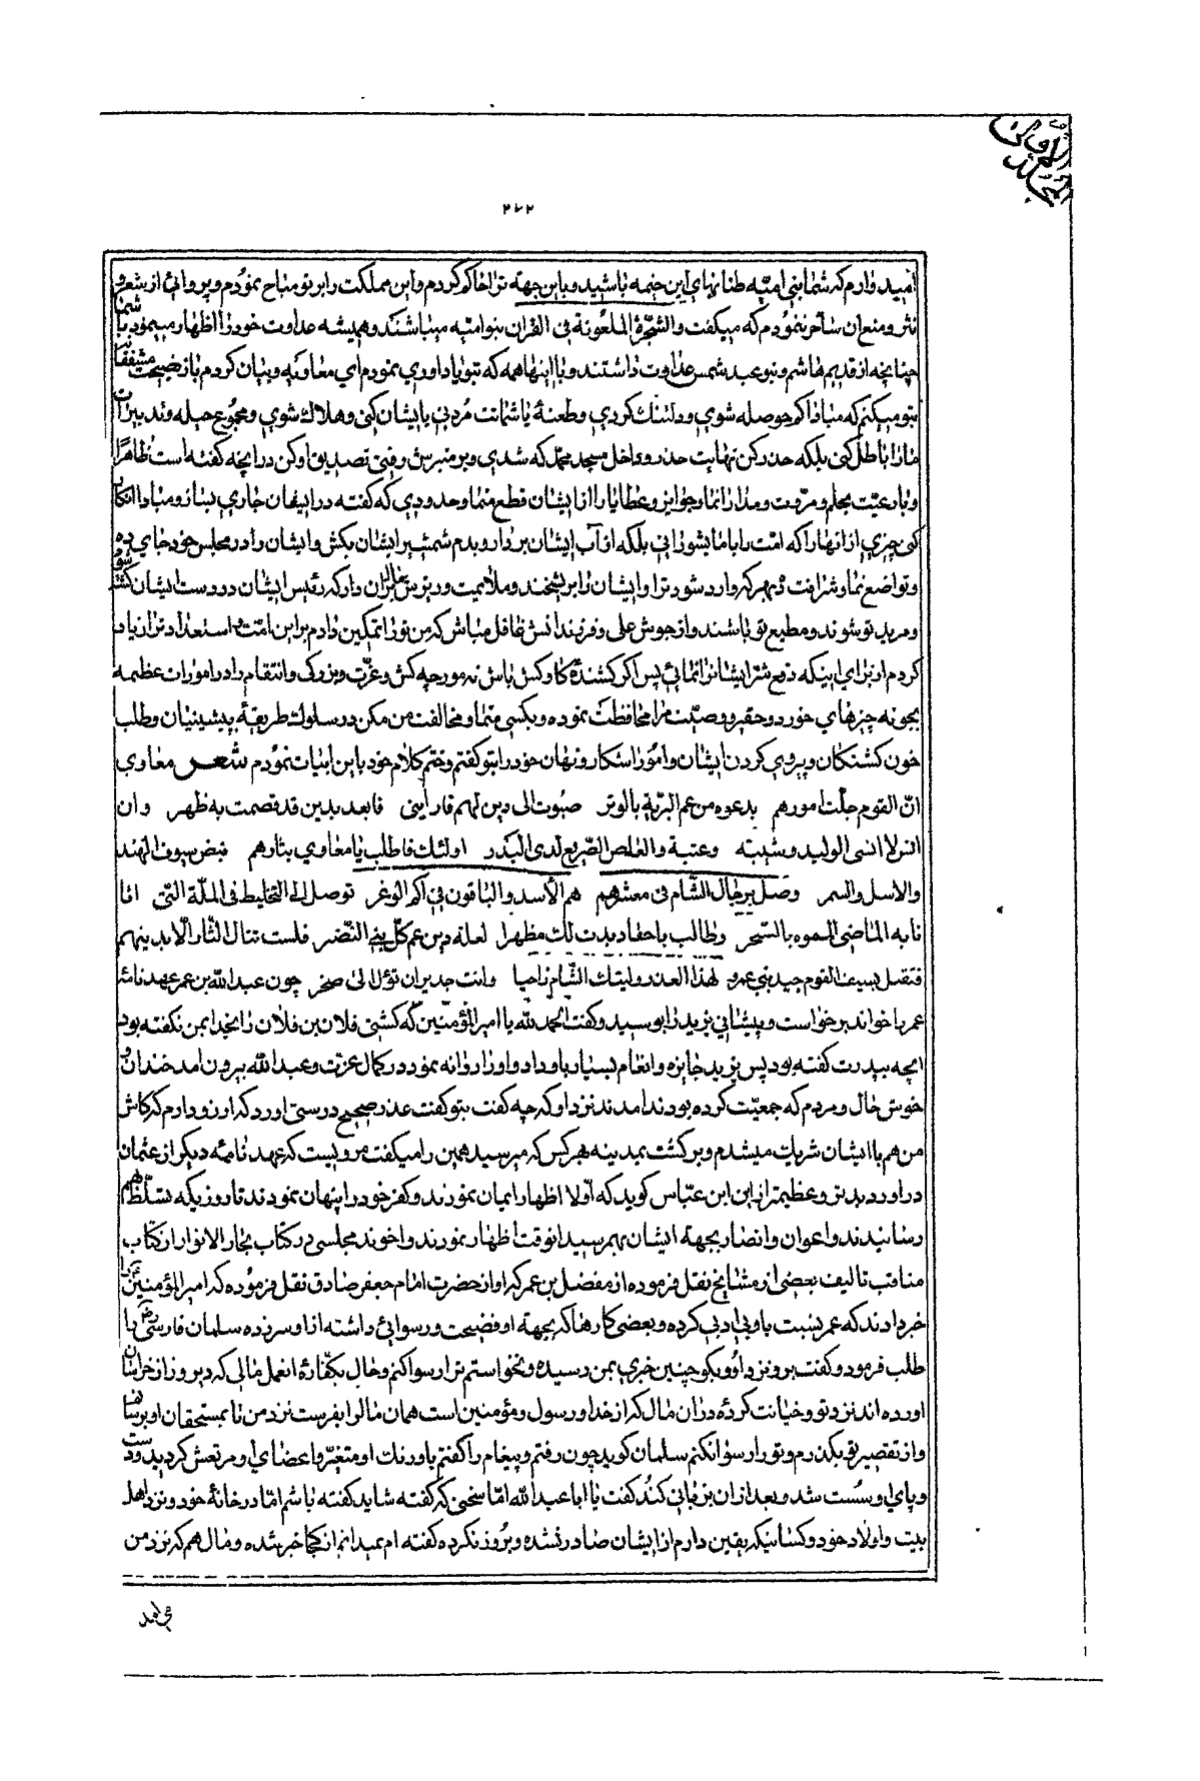 المجلد
الاول من
۲۶۲
امیدوارم که شما بنی امیّه طنابهای این خیمه باشید و باین جهة ترا حاکم کردم و این مملکت را بر تو مباح نمودم و پروائی از شعر و
نثر و منع ان ساحر ننمودم که میگفت والشّجرة الملعونة فی القران بنو امیّه میباشند و همیشه عداوت خود را اظهار مینمود با شما
چنانچه از قدیم هاشم و بنو عبد شمس عداوت داشتند و با اینها همه که بتو یاد اوری نمودم ای معاویه و بیان کردم باز نصیحت مشفقانه
بتو میکنم که مبادا کم حوصله شوی و دلتنك کردی و طعنۀ یا شماتت مردنی بایشان کنی و هلاك شوی و مجموع حیله و تدبیرات
مارا باطل کنی بلکه حذر کن نهایت حذر و داخل مسجد محمّد که شدی و بر منبرش رفتی تصدیق او کن در انچه کفته است ظاهرًا
و با رعیّت بحلم و مروّت و مدارا نما و جوایز و عطایا را از ایشان قطع منما و حدودی که کفته در ایشان جاری بساز و مبادا انکار
کنی چیزی از انها را که امّت را با ما بشورانی بلکه از آب ایشان بردار و بدم شمشیر ایشان بکش و ایشان را در مجلس خود جای ده
و تواضع نما و شرافت ده بهر که وارد شود ترا و ایشان را بر بخشند و ملایمت و در ترس کران دار که رئیس ایشان در دست ایشان کشته شود
و مرید تو شوند و مطیع تو باشند و از جوش علی و فرزندانش غافل مباش که من تو را تمکین دادم بر این امّت و استعداد ترا زیاد
کردم از برای اینکه دفع شرّ ایشانرا نمائی پس اکر کشندۀ کاوکش باش نه مورچه کش و عزّت و بزرکی و انتقام را در امورات عظیمه
بجو نه چیزهای خورد و حقیر و وصیّت مرا محافظت نموده و بکسی منما و مخالفت من مکن در سلوك طریقۀ پیشینیان و طلب
خون کشتکان و پیروی کردن ایشان و امور اشکار و نهان خود را بتو کفتم و ختم کلام خود باین ابیات نمودم شعر معاوی
انّ القوم جلّت امورهم بدعوه من عم البریّة بالوتر صبوت الی دین لهم فارابنی فابعد بدین قد قصمت به ظهر وان
انس لا انسی الولید و شیبته وعتبة والعاص الصّریع لدی البدر اولئك فاطلب یا معاوی بثارهم بیض سیوف الهند
والاسل والسمر وصل برجال الشّام فی معشرهم هم الاسد والباقون فی اکم الوغر توصل الی التخلیط فی الملّة التی اتا
نابه الماضی المموه بالسّحر وطالب باحقاد بدت لك مظهرا لعلة دین عم کلّ بنی النّضر فلست تنال الثّار الّا بدینهم
فتقتل بسیف القوم جید بنی عمرو لهذا لقد ولیتك الشّام راجیا وانت جدیر ان تؤل الی صخر چون عبد اللّٰه بن عمر عهد نامۀ
عمر را خواند برخواست و پیشانی یزید را بوسید و کفت الحمد للّٰه یا امیر المؤمنین که کشتی فلان بن فلان را بخدا بمن نکفته بود
انچه بپدرت کفته بود پس یزید جایزه و انعام بسیار باو داد و او را روانه نمود در کمال عزت و عبد اللّٰه بیرون امد خندان و
خوش حال و مردم که جمعیّت کرده بودند امدند نزد او که چه کفت بتو کفت عذر صحیح درستی اورد که ارزو دارم که کاش
من هم با ایشان شریك میشدم و برکشت بمدینه بهر کس که میرسید همین را میکفت مرویست که عهد نامۀ دیکر از عثمان
در اورد بدتر و عظیمتر از این ابن عبّاس کوید که اوّلا اظهار ایمان نمودند و کفر خود را پنهان نمودند تا روزیکه تسلّط بهم
رسانیدند و اعوان و انصار بجهة ایشان بهم رسید انوقت اظهار نمودند و اخوند مجلسی در کتاب بحار الانوار از کتاب
مناقب تالیف بعضی از مشایخ نقل فرموده از مفضل بن عمر که او از حضرت امام جعفر صادق نقل فرموده که امیر المؤمنین را
خر دادند که عمر نسبت باو بی ادبی کرده و بعضی کارها که بجهة او فضیحت و رسوائی داشته از او سر زده سلمان فارسی را
طلب فرمود و کفت برو نزد او و بکو چنین خبری بمن رسیده و نخواستم ترا رسوا کنم و حال بکفّارۀ انعمل مالی که دیروز از خراسان
اورده اند نزد تو و خیانت کردۀ در ان مال که از خدا و رسول و مؤمنین است همان مال را بفرست نزد من تا بمستحقان او برسانم
و از تقصیر تو بکذرم و تو را رسوا نکنم سلمان کوید چون رفتم و پیغام را کفتم باو رنك او متغیّر و اعضای او مرتعش کردید و دست
و پای او سست شد و بعد ازان بزبانی کند کفت یا ابا عبد اللّٰه امّا سخنی که کفته شاید کفته باشم امّا در خانۀ خود و نزد اهل
بیت و اولاد خود و کسانیکه یقین دارم از ایشان صادر نشده و بروز نکرده کفته ام نمیدانم از کجا خبر شده و مال هم که نزد من